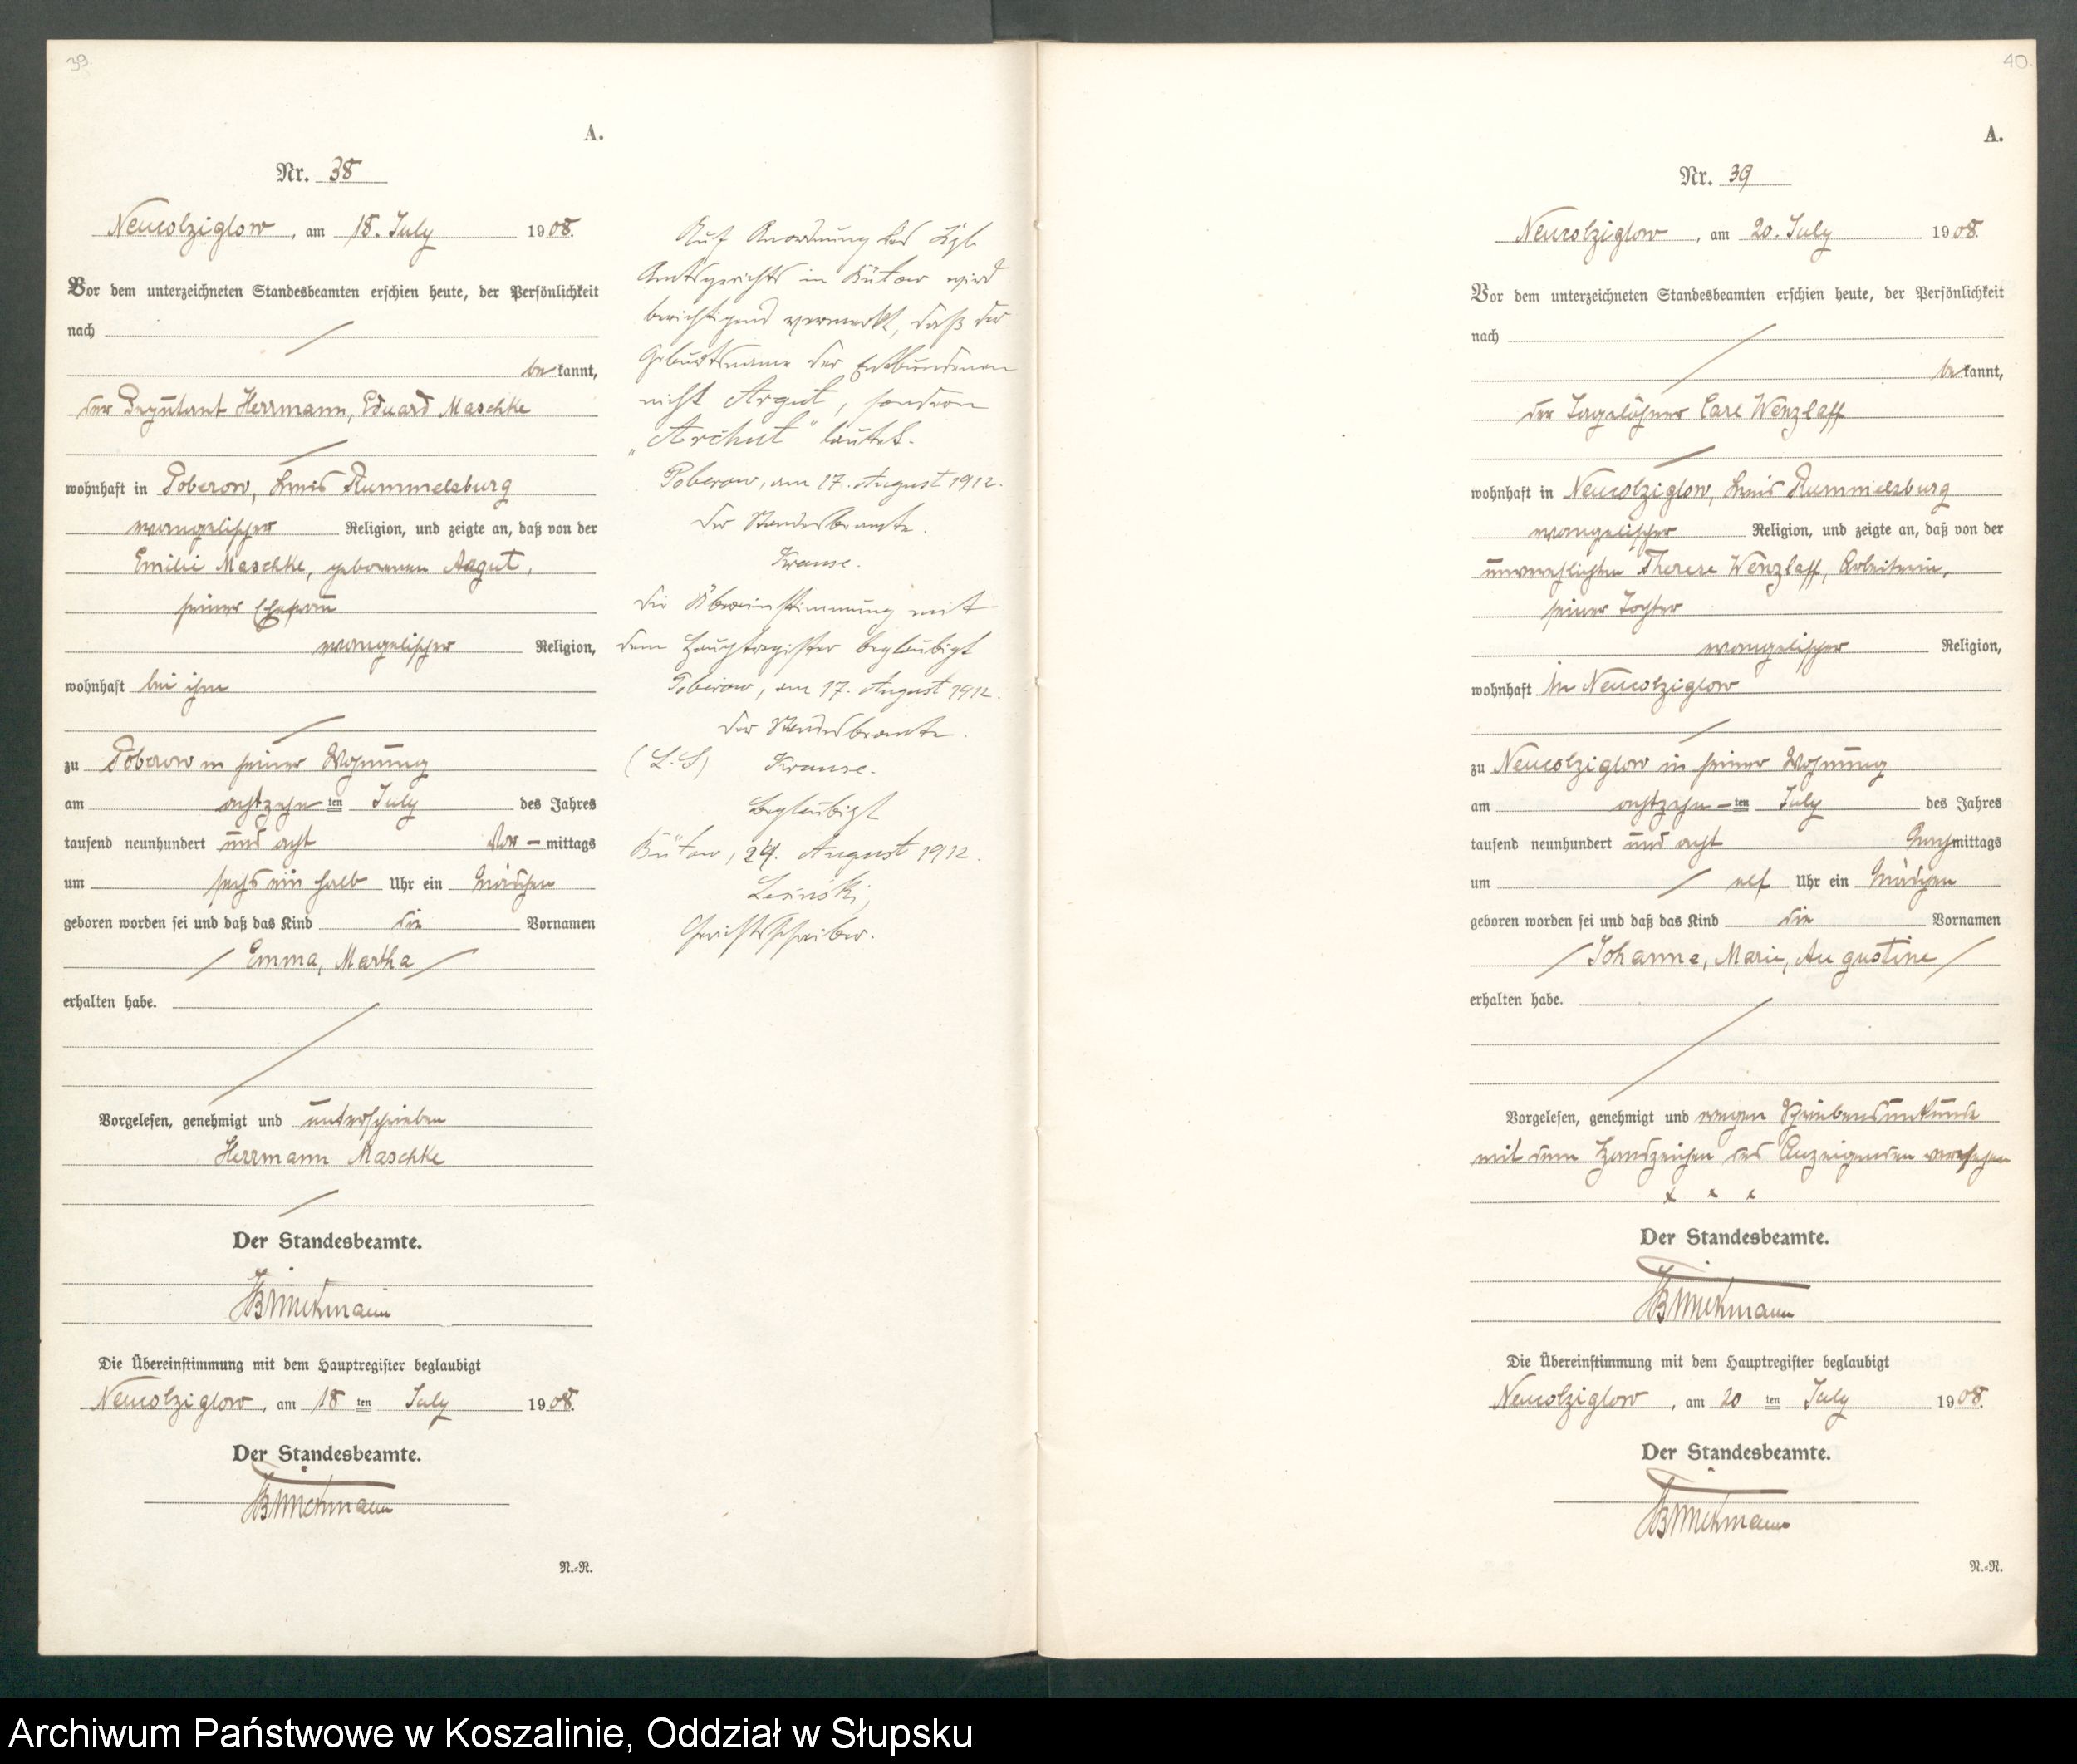 39
A.
Nr. 38
Neucolziglow, am 18. July 1908.
Vor dem unterzeichneten Standesbeamten erschien heute, der Persönlichkeit
nach
be kannt,
der Deputant Herrmann, Eduard Maschke
wohnhaft in Poberow, Kreis Rummelsburg
evangelischer Religion, und zeigte an, daß von der
Emilie Maschke, geborenen Aagut,
seiner Ehefrau
evangelischer Religion,
wohnhaft bei ihm
zu Poberow in seiner Wohnung
am achtzehn ten July des Jahres
tausend neunhundert und acht Vor-mittags
um sechs ein halb Uhr ein Mädchen
geboren worden sei und daß das Kind die Vornamen
Emma, Martha
erhalten habe.
Vorgelesen, genehmigt und unterschrieben
Herrmann Maschke
Der Standesbeamte.
Brinckmann
Die Übereinstimmung mit dem Hauptregister beglaubigt
Neucolziglow, am 18 ten July 1908.
Der Standesbeamte.
Brinckmann
N.-R.
Auf Anordnung des Kgl.
Amtsgerichts in Bütow wird
berichtigend vermerkt, daß der
Geburtsname der Entbundenen
nicht Argut, sondern
„Archut" lautet.
Poberow, am 17. August 1912.
Der Standesbeamte.
Krause.
Die Übereinstimmung mit
dem Hauptregister beglaubigt
Poberow, am 17. August 1912.
Der Standesbeamte.
(L.S) Krause.
Beglaubigt
Bütow, 24. August 1912.
Lesinski,
Gerichtsschreiber.
40.
A.
Nr. 39
Neucolziglow, am 20. July 1908.
Vor dem unterzeichneten Standesbeamten erschien heute, der Persönlichkeit
nach
be kannt,
der Tagelöhner Carl Wenzlaff
wohnhaft in Neucolziglow, Kreis Rummelsburg
evangelischer Religion, und zeigte an, daß von der
unverehelichten Therese Wenzlaff, Arbeiterin,
seiner Tochter
evangelischer Religion,
wohnhaft in Neucolziglow
zu Neucolziglow in seiner Wohnung
am achtzehn-ten July des Jahres
tausend neunhundert und acht Nachmittags
um elf Uhr ein Mädchen
geboren worden sei und daß das Kind die Vornamen
Johanne, Marie, Augustine
erhalten habe.
Vorgelesen, genehmigt und wegen Schreibensunkunde
mit dem Handzeichen des Anzeigenden versehen
x x x
Der Standesbeamte.
Brinckmann
Die Übereinstimmung mit dem Hauptregister beglaubigt
Neucolziglow, am 20 ten July 1908.
Der Standesbeamte.
Brinckmann
N.-R.
Archiwum Państwowe w Koszalinie, Oddział w Słupsku